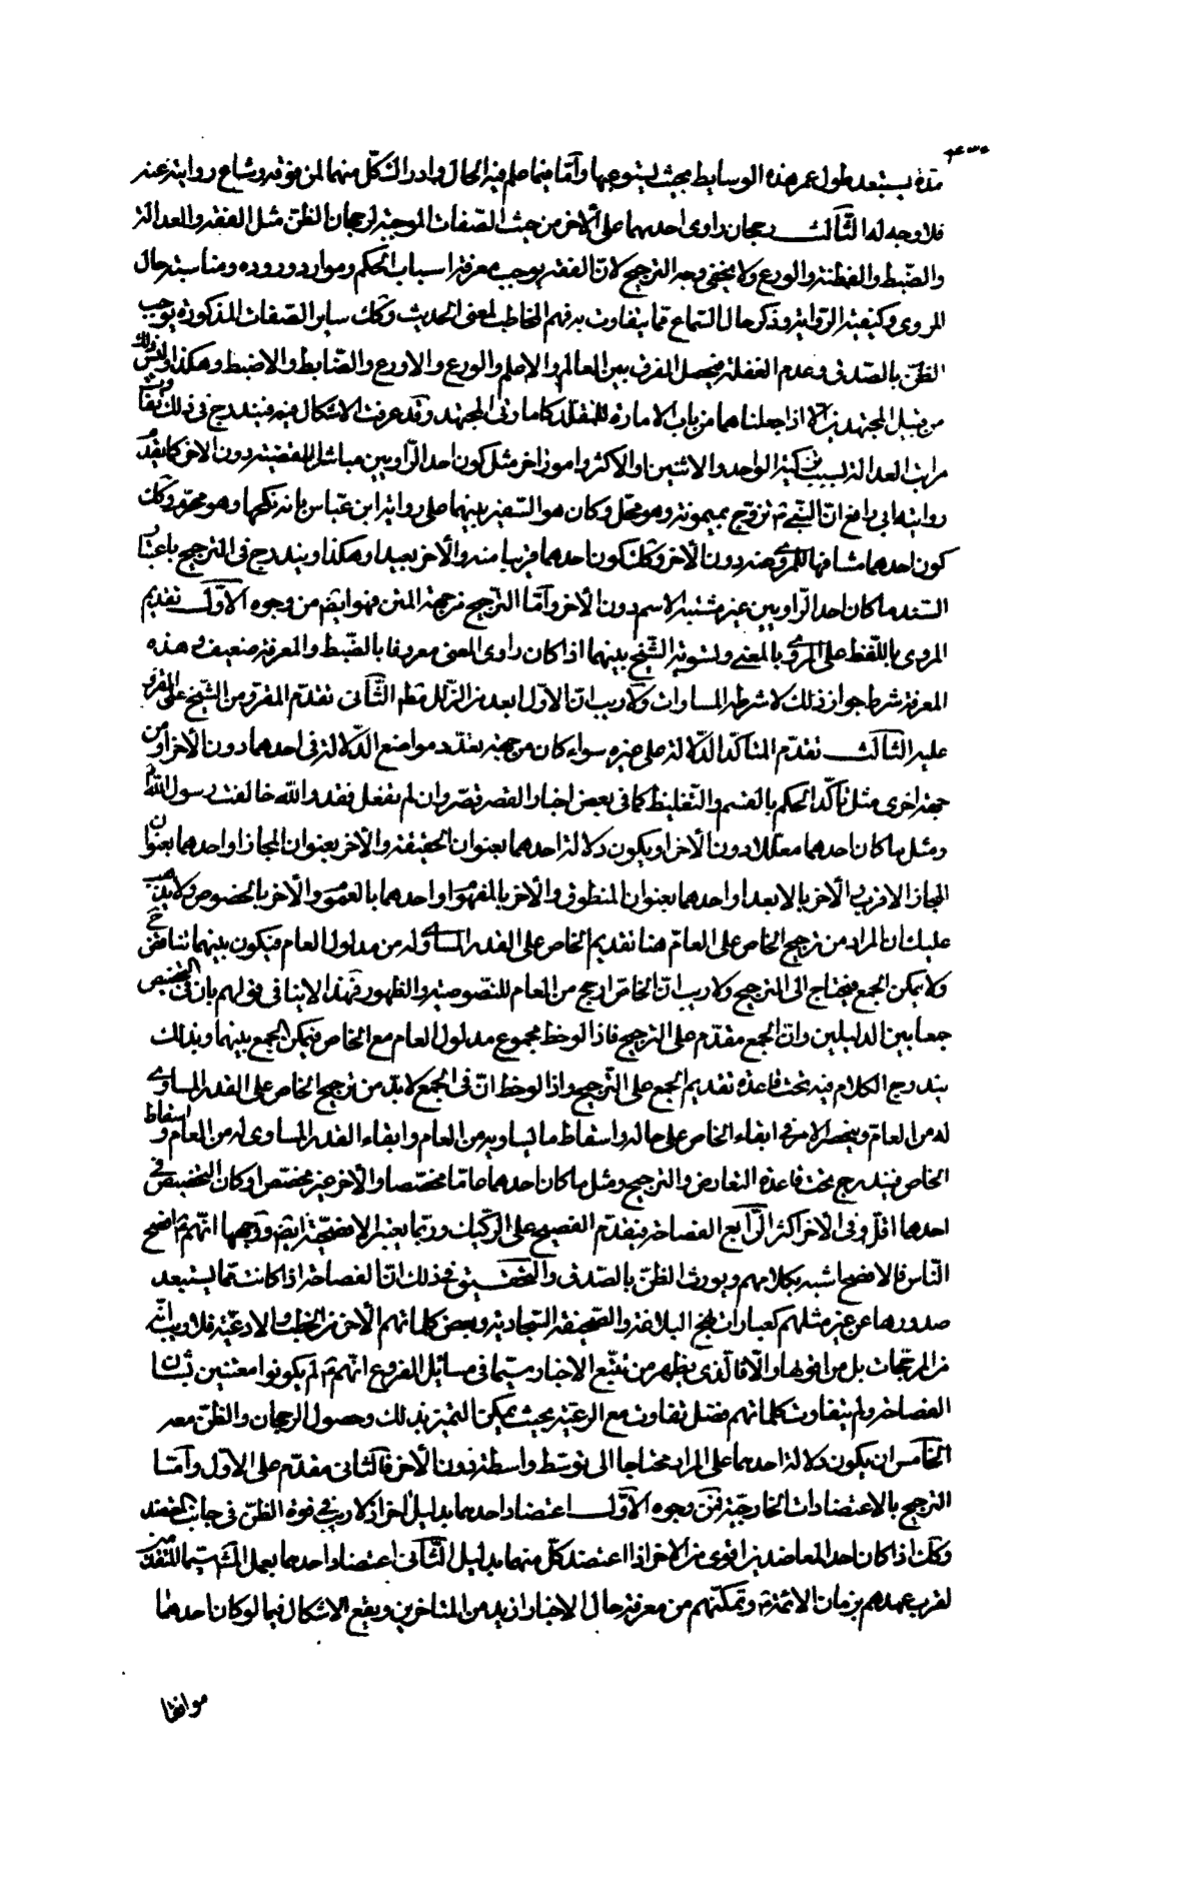 مدة يستبعد طول عمر هذه الوسايط بحيث يستوعبها وأما فيما علم فيه الحال وادراك كل منهما لمن فوقه وشاع روايته عنه
فلا وجه له الثالث رجحان راوى احدهما على الآخر من حيث الصفات الموجبة لرجحان الظن مثل الفقه والعدالة
والضبط والفطنة والورع ولا يخفى وجه الترجيح لان الفقه يوجب معرفة اسباب الحكم وموارد وروده ومناسبة حال
المروى وكيفية الرواية وذكر حال السماع مما يتفاوت به فهم المخاطب لمعنى الحديث وكك ساير الصفات المذكورة يوجب
الظن بالصدق وعدم الغفلة فيحصل الفرق بين العالم والاعلم والورع والاورع والضابط والاضبط وهكذا وليس ذلك
من قبيل المجتهدين الا اذا جعلناهما من باب الامارة للمقلد كاماراتى المجتهد وقد عرفت الاشكال فيه فيندرج فى ذلك تفاوت
مراتب العدالة بسبب تزكية الواحد والاثنين او الاكثر وامور اخر مثل كون احد الراويين مباشرا للقضية دون الآخر كما يقدم
رواية ابى رافع ان النبى ص تزوج بميمونة وهو محل وكان هو السفير بينهما على رواية ابن عباس بانه نكحها وهو محرم وكك
كون احدهما مشافها للمروى عنه دون الآخر وكك كون احدهما قريبا منه والآخر بعيدا وهكذا ويندرج فى الترجيح باعتبار
السند ما كان احد الراويين غير مشتبه الاسم دون الآخر وأما الترجيح من جهة المتن فهو ايضا من وجوه الأول تقديم
المروى باللفظ على المروى بالمعنى وتسوية الشيخ بينهما اذا كان راوى المعنى معروفا بالضبط والمعرفة ضعيف وهذه
المعرفة شرط جواز ذلك لا شرطه المساوات ولا ريب ان الاول ابعد من الزلل مطم الثانى تقدم المقرو من الشيخ على المقرو
عليه الثالث تقدم المتاكد الدلالة على غيره سواء كان من جهة تعدد مواضع الدلالة فى احدهما دون الآخر او من
جهة اخرى مثل تأكد الحكم بالقسم والتغليظ كما فى بعض اخبار القصر قصر وان لم تفعل فقد والله خالفت رسول الله ص
ومثل ما كان احدهما معللا دون الآخر او يكون دلالة احدهما بعنوان الحقيقة والآخر بعنوان المجاز او احدهما بعنوان
المجاز الاقرب والآخر بالابعد او احدهما بعنوان المنطوق والآخر بالمفهوم او احدهما بالعموم والآخر بالخصوص ولا يذهب
عليك ان المراد من ترجيح الخاص على العام هنا تقديم الخاص على القدر المساوى له من مدلول العام فيكون بينهما تناقض ح
ولا يمكن الجمع فيحتاج الى الترجيح ولا ريب ان الخاص ارجح من العام للنصوصية والظهور فهذا لا ينافى قولهم بان فى التخصيص
جمعا بين الدليلين وان الجمع مقدم على الترجيح فاذا لوحظ مجموع مدلول العام مع الخاص فيمكن الجمع بينهما وبذلك
يندرج الكلام فيه تحت قاعدة تقديم الجمع على الترجيح واذا لوحظ ان فى الجمع لا بد من ترجيح الخاص على القدر المساوى
له من العام وينحصر الامر فى ابقاء الخاص على حاله واسقاط ما يساويه من العام وابقاء القدر المساوى له من العام واسقاط
الخاص فيندرج تحت قاعدة التعارض والترجيح ومثل ما كان احدهما عاما مخصصا والآخر غير مخصص او كان التخصيص فى
احدهما اقل وفى الآخر اكثر الرابع الفصاحة فيقدم الفصيح على الركيك وربما يعتبر الافصحية ايضا ووجهها انهم ع افصح
الناس فالافصح اشبه بكلامهم ويورث الظن بالصدق والتحقيق فى ذلك ان الفصاحة اذا كانت مما يستبعد
صدورها عن غير مثلهم كعبارات نهج البلاغة والصحيفة السجادية وبعض كلماتهم الآخر من الخطب والادعية فلا ريب انه
من المرجحات بل من اقويها والا فالذى يظهر من تتبع الاخبار سيما فى مسائل الفروع انهم ع لم يكونوا معتنين بشأن
الفصاحة ولم يتفاوت كلماتهم فضل تفاوت مع الرعية بحيث يمكن التميز بذلك وحصول الرجحان والظن معه
الخامس ان يكون دلالة احدهما على المراد محتاجا الى توسط واسطة دون الآخر فالثانى مقدم على الاول وأما
الترجيح بالاعتضادات الخارجية فمن وجوه الأول اعتضاد احدهما بدليل آخر اذ لا ريب فى قوة الظن فى جانب المعتضد
وكك اذا كان احد المعاضدين اقوى من الآخر اذا اعتضد كل منهما بدليل الثانى اعتضاد احدهما بعمل المشهور سيما المتقدمين
لقرب عهدهم بزمان الائمة ع وتمكنهم من معرفة حال الاخبار ازيد من المتاخرين ويقع الاشكال فيما لو كان احدهما
موافقا